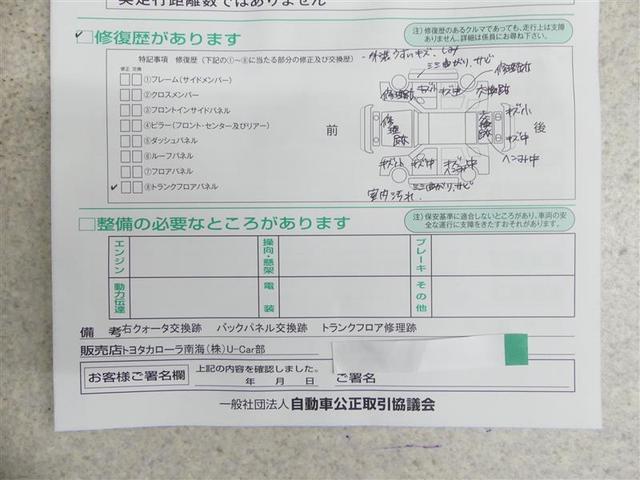 実走行距離数ではありません
修復歴があります
注)修復歴のあるクルマであっても、走行上は支障
ありません。詳細は係員にお尋ね下さい。
特記事項 修復歴(下記の①〜⑧に当たる部分の修正及び交換歴)
修正 交換
①フレーム(サイドメンバー)
②クロスメンバー
③フロントインサイドパネル
④ピラー(フロント・センター及びリアー)
⑤ダッシュパネル
⑥ルーフパネル
⑦フロアパネル
⑧トランクフロアパネル
外装うすいキズ、しみ
ミミ曲がり、サビ
修理跡
修理跡
キズ小
キズ中
交換跡
前
修理跡
交換跡
キズ小
キズ中
後
ヘこみ中
キズ小
キズ中
ミミ曲がり、サビ
室内汚れ、
整備の必要なところがあります
注)保安基準に適合しないところがあり、車両の安
全な運行に支障をきたすおそれがあります。
エンジン
操向・懸架
ブレーキ
動力伝達
電装
その他
備考 右クォータ交換跡 バックパネル交換跡 トランクフロア修理跡
販売店 トヨタカローラ南海(株)U-Car部
お客様ご署名欄
上記の内容を確認しました。
年 月 日
ご署名
一般社団法人 自動車公正取引協議会